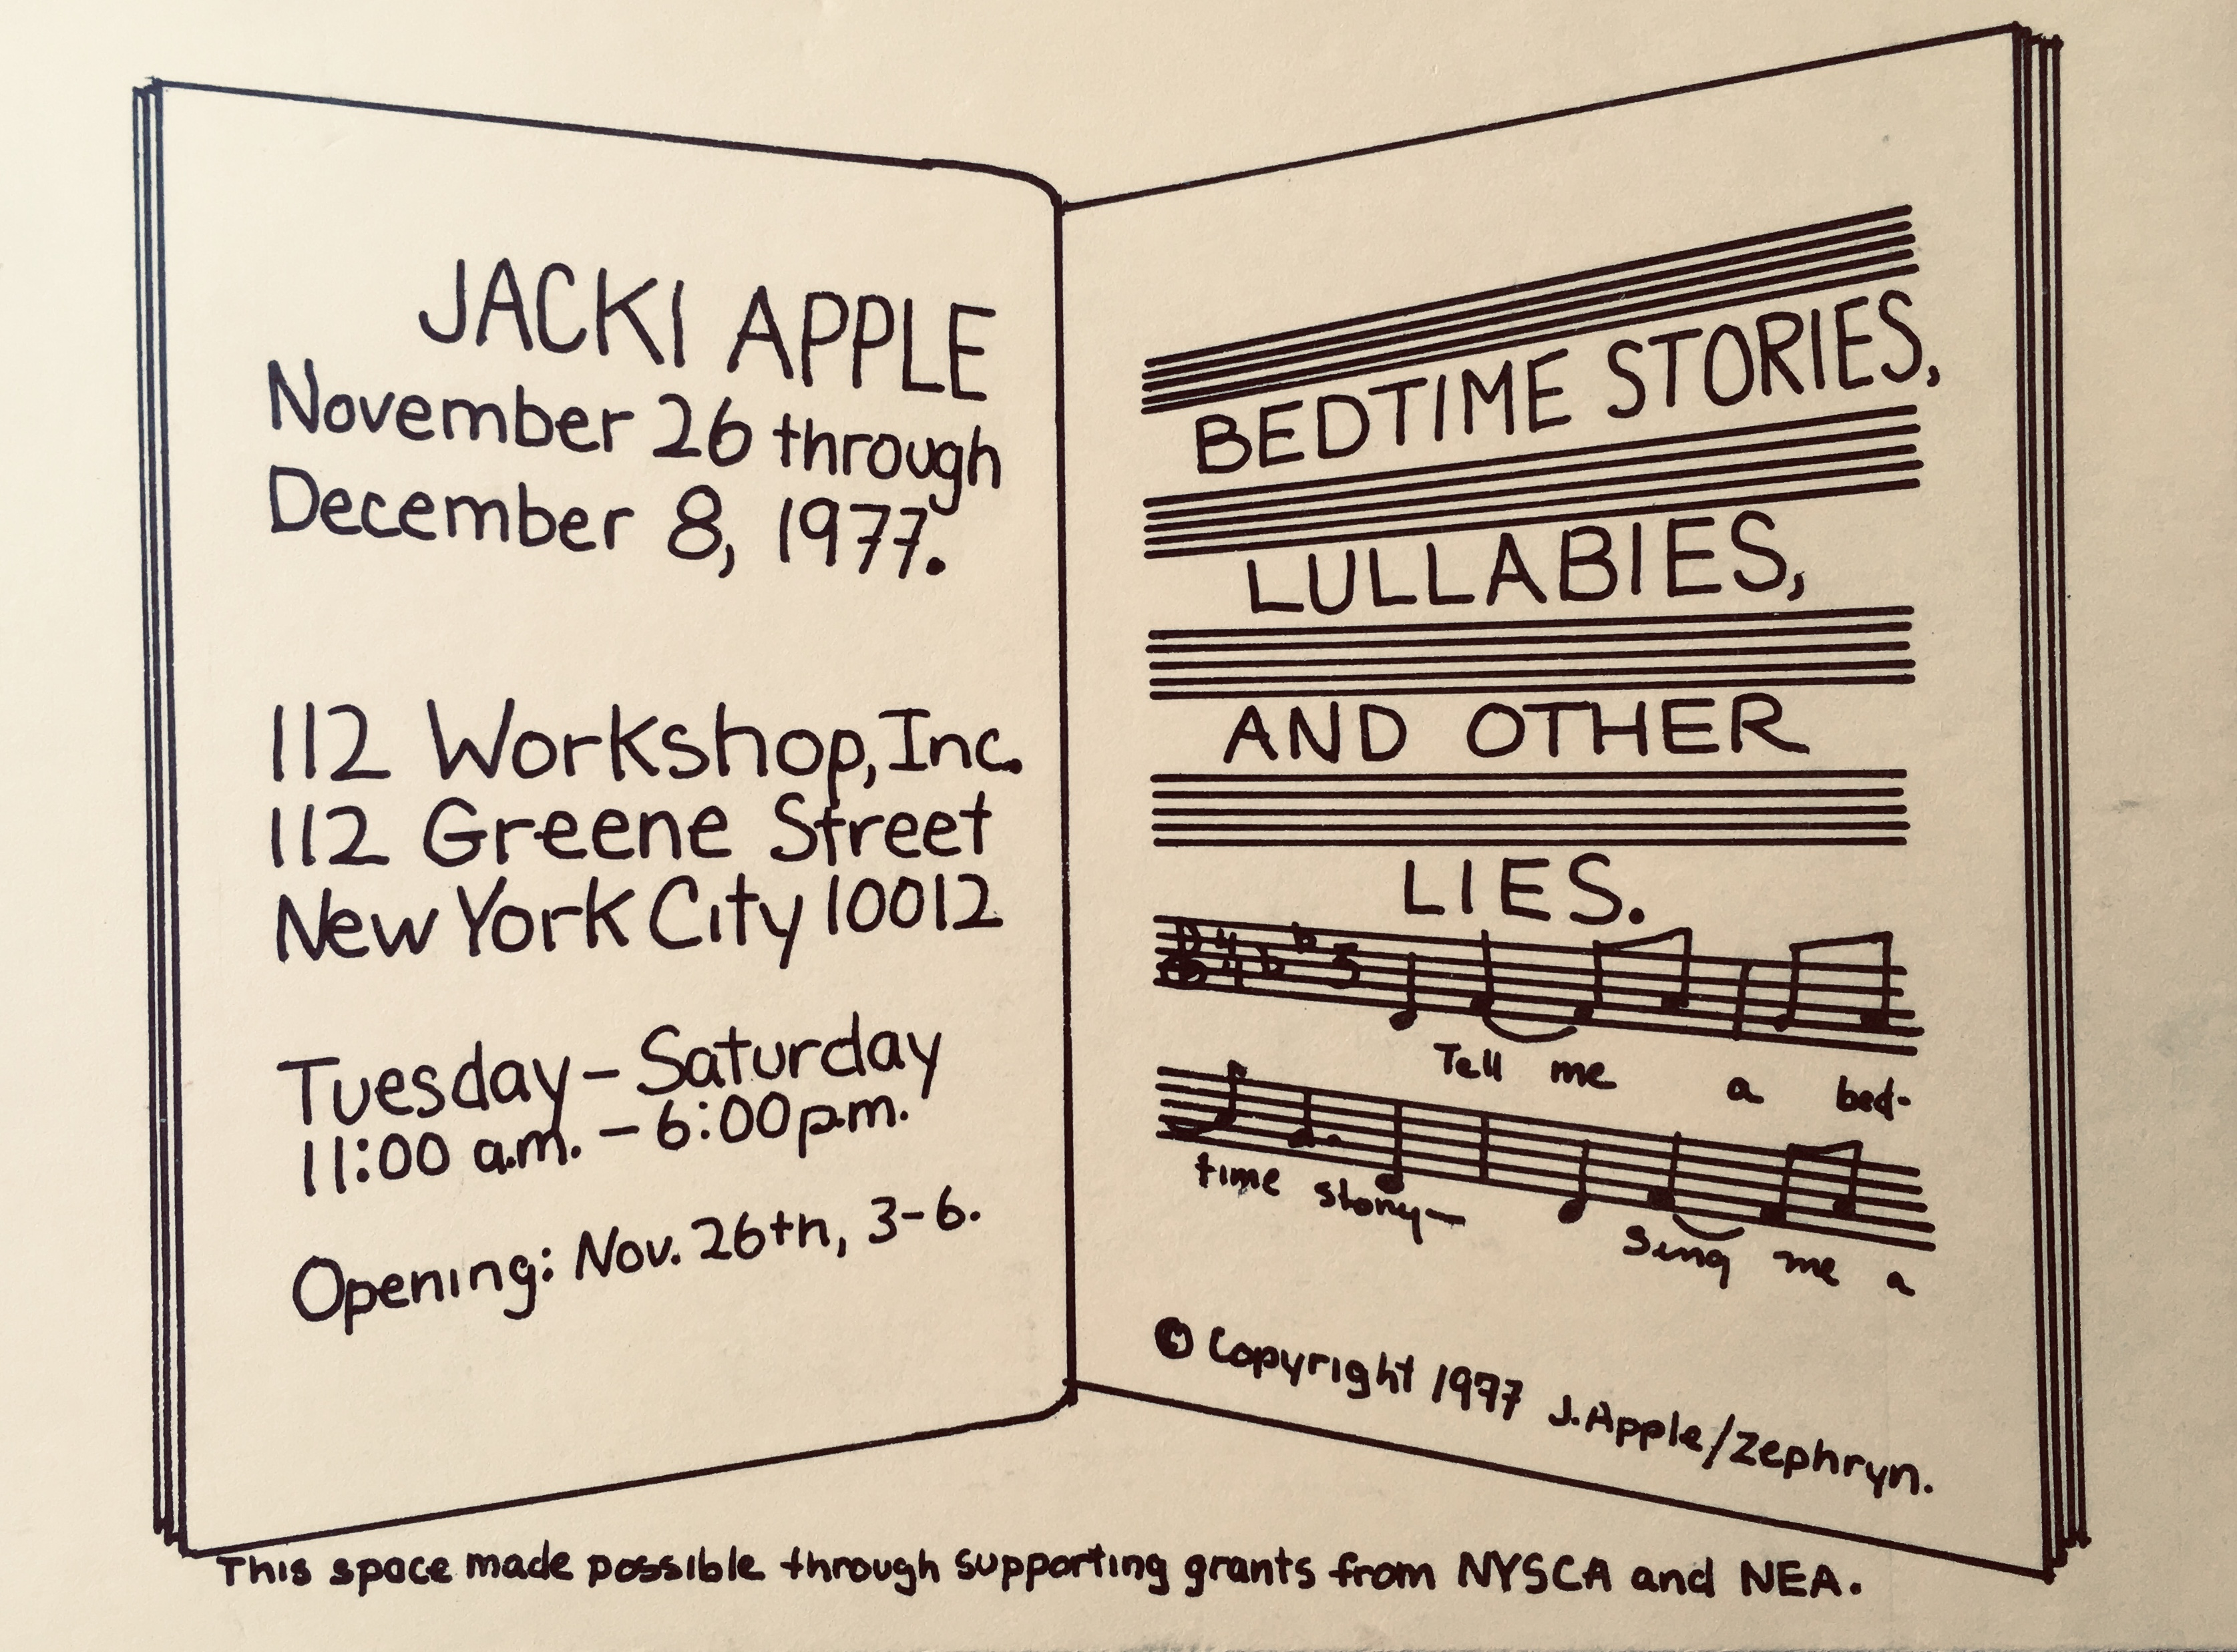 JACKI APPLE
November 26 through
December 8, 1977.
112 Workshop, Inc.
112 Greene Street
New York City 10012
Tuesday – Saturday
11:00 a.m. – 6:00 p.m.
Opening: Nov. 26th, 3-6.
BEDTIME STORIES,
LULLABIES,
AND OTHER
LIES.
Tell me a bed-
time story—
Sing me a
© Copyright 1977 J. Apple/Zephryn.
This space made possible through supporting grants from NYSCA and NEA.